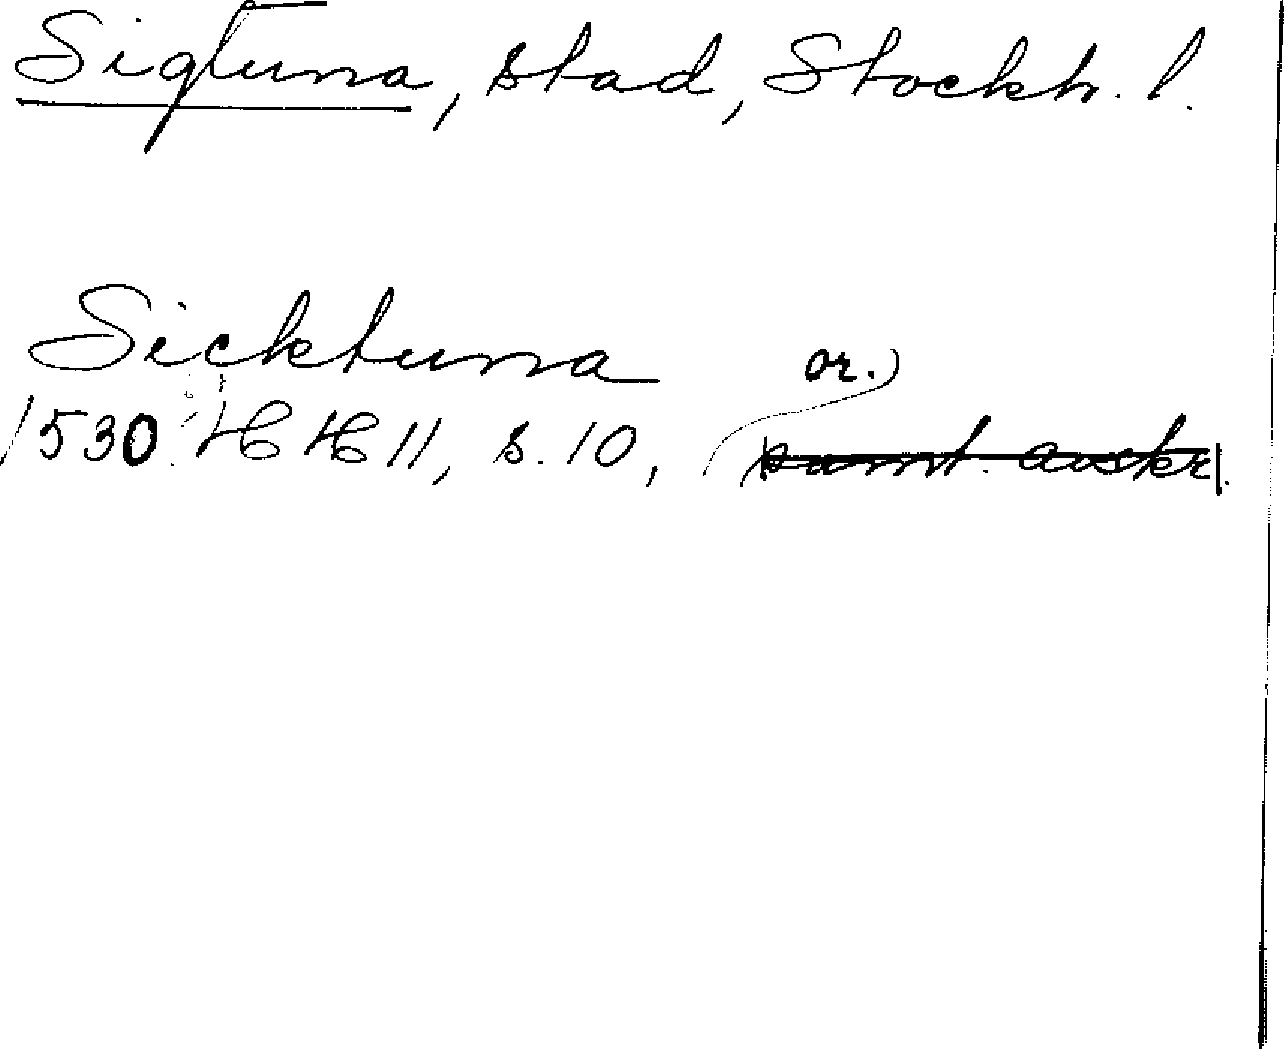 Sigtuna, stad, Stockh. l.
Sicktuna
or.
1530 HH 11, s. 10, samt. avskr.